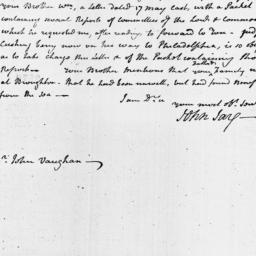 your Brother Wm, a Letter dated 17 May last, with a Packet
containing several Reports of Committees of the Lords & Commons
which he requested me, after reading, to forward to you -
Cushing being now on his way to Philadelphia, is so ob
as to take charge this Letter & of the Packet containing tho
Reports — Your Brother mentions that your Father's family
at Brighton - that he had been unwell, but had found benef
from the Sea —
I am Dr Sir
your most obt. Serv
John Jay
Mr. John Vaughan —